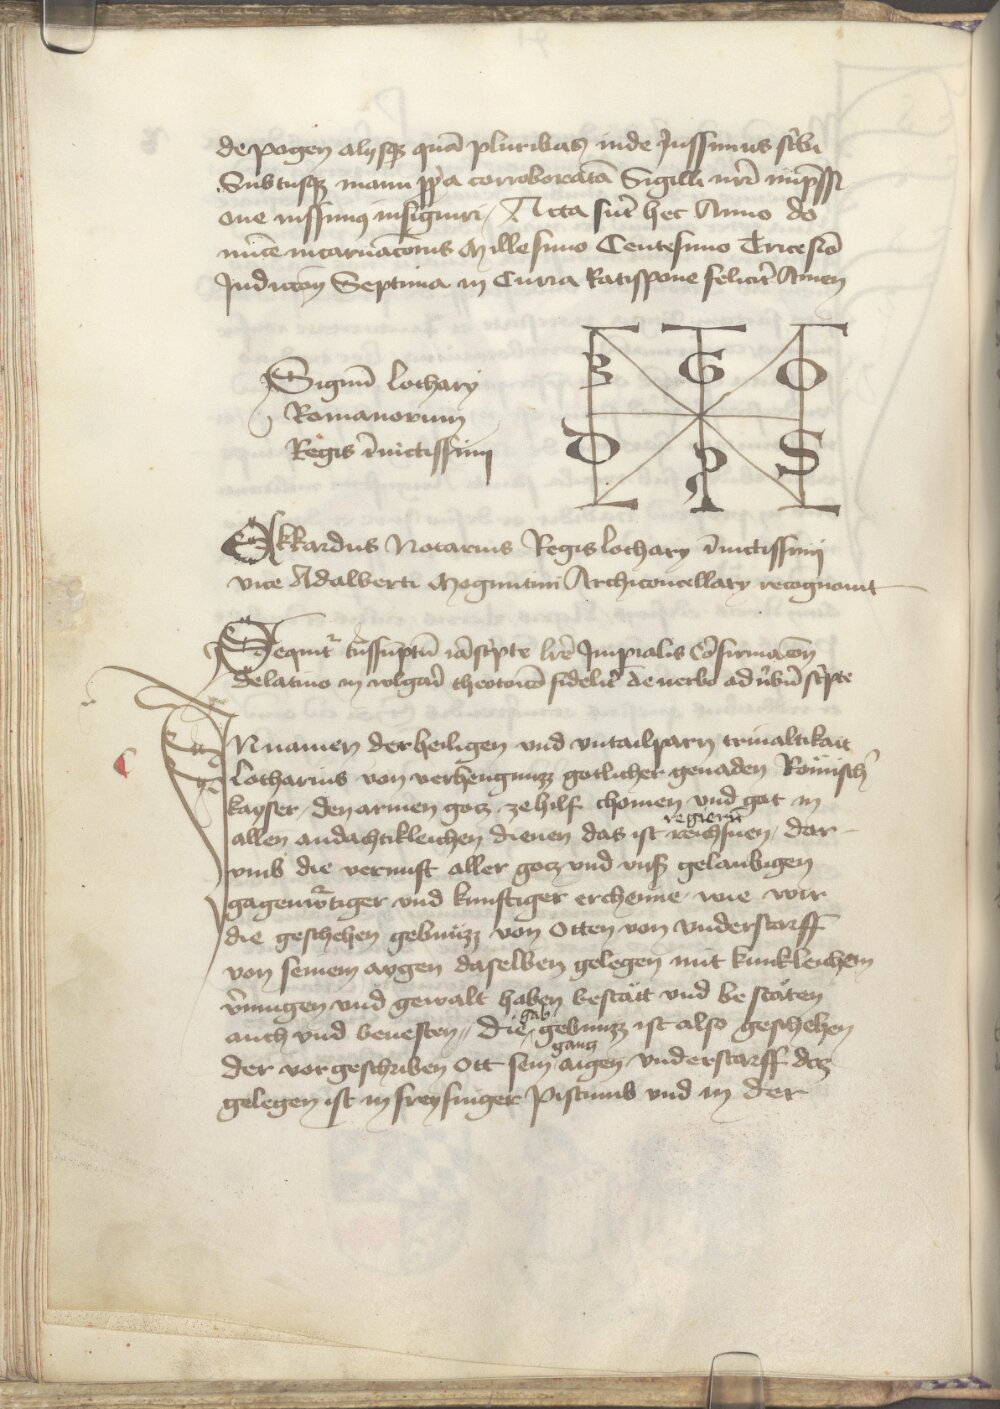 de pogen alysqz quā pluribus inde Jussimus sc̄bi
Subtusqz manu pp̄a corroboratā Sigilli nr̄i imp̄ssi
one iussimus insigniri Acta sūt hec Anno do
mīce incarnac̄onis Millesimo Centesimo Tricesīo
Indiccōn Septima in Curia Ratispone felicit̄ Amen
Signū Lothary
Romanorum
Regis īuictissimi
B G O
D P S
Ekkardus Notarius Regis Lothary īuictissimi
vice Adalberti Moguntini Archicancellary recognouit
Sequit᷑ t̄nssūptū iāsc̄pte lr̄e Imp̄ialis Cōfirmac̄on
de latino in volgar̄ theotonicū fidelit̄ de uerbo ad ūbū sc̄pte
IN namen der heiligen vnd vntailparn triualtikait
Lotharius von verhengnuzz gotlicher genaden Römisch̄
kayser den armen gotz ze hilf chomen vnd got in
regiern̄
allen andachtikleichen dienen das ist reichsnen dar
vmb die vernuft aller gotz vnd vnß gelaubigen
gagenwr̄tiger vnd kunftiger erchenne wie wir
die geschehen gebnuzz von Otten von vnderstarff
von seinem aygen daselben gelegen mit kunkleichem
v̄mugen vnd gewalt haben bestätt vnd bestäten
gab
auch vnd beuesten die gebnuzz ist also geschehen
gantz
der vorgeschriben Ott sein aigen vnderstarff daz
gelegen ist in freysinger Pistumb vnd in der